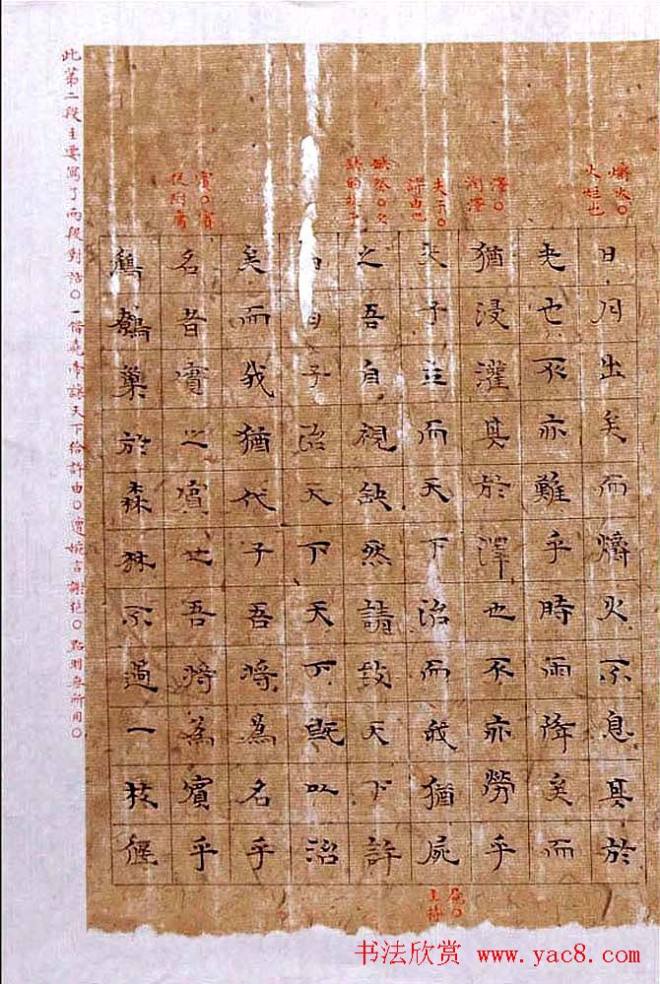 爝火○
火炬也
澤○
潤澤
夫子○
許由也
缺然○欠
缺的樣子
日月出矣而爝火不息其於
光也不亦難乎時雨降矣而
猶浸灌其於澤也不亦勞乎
夫子立而天下治而我猶屍
之吾自視缺然請致天下許
由曰子治天下天下既以治
矣而我猶代子吾將為名乎
名者實之賓也吾將為賓乎
鷦鷯巢於森林不過一枝偃
屍○
主持
此第二段主要寫了兩段對話○一借堯帝讓天下給許由○遭婉言謝絕○點明無所用○
书法欣赏 www.yac8.com